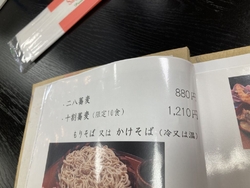 ・二八蕎麦 880円
・十割蕎麦(限定10食) 1,210円
もりそば 又は かけそば(冷又は温)